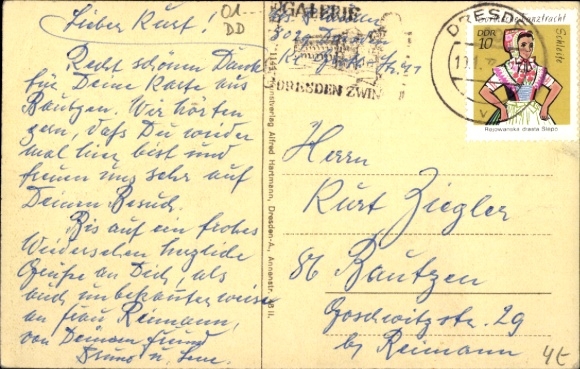 Lieber Kurt!
Recht schönen Dank
für Deine Karte aus
Bautzen. Wir hörten
gern, daß Du wieder
mal hier bist und
freuen uns sehr auf
Deinen Besuch.
Bis auf ein frohes
Wiedersehen herzliche
Grüße an Dich, als
auch unbekannter weise
an Frau Reimann,
von Deinem Freund
Bruno u.
01-
DD
GALERIE
DRESDEN ZWIN
1145 Kunstverlag Alfred Hartmann, Dresden-A., Annenstr.
DRESDE
DDR
10
Schleife
Rejowanska drasta Slepo
Herrn
Kurt Ziegler
86 Bautzen
Goschwitzstr. 29
by Reimann
4E